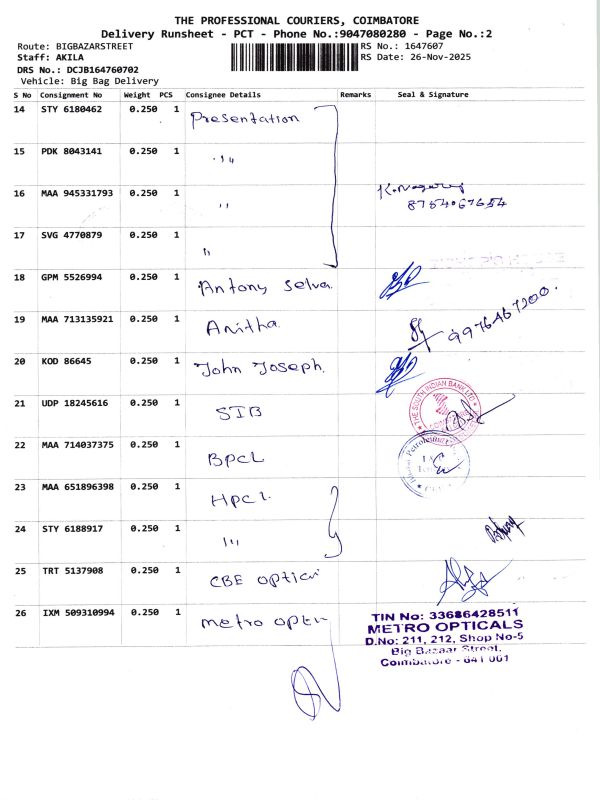 THE PROFESSIONAL COURIERS, COIMBATORE
Delivery Runsheet - PCT - Phone No.:9047080280 - Page No.:2
Route: BIGBAZARSTREET
RS No.: 1647607
Staff: AKILA
RS Date: 26-Nov-2025
DRS No.: DCJB164760702
Vehicle: Big Bag Delivery
S No Consignment No Weight PCS Consignee Details Remarks Seal & Signature
14 STY 6180462 0.250 1 Presentation
15 PDK 8043141 0.250 1 ,,
16 MAA 945331793 0.250 1 ,,
8754067654
17 SVG 4770879 0.250 1 ,,
18 GPM 5526994 0.250 1 Antony Selva
19 MAA 713135921 0.250 1 Anitha 9976467200
20 KOD 86645 0.250 1 John Joseph.
21 UDP 18245616 0.250 1 SIB
THE SOUTH INDIAN BANK LTD
22 MAA 714037375 0.250 1 BPCL
23 MAA 651896398 0.250 1 HPCL
24 STY 6188917 0.250 1 ,,,
25 TRT 5137908 0.250 1 CBE optical
26 IXM 509310994 0.250 1 metro opti
TIN No: 33686428511
METRO OPTICALS
D.No: 211, 212, Shop No-5
Big Bazaar Street,
Coimbatore - 641 001